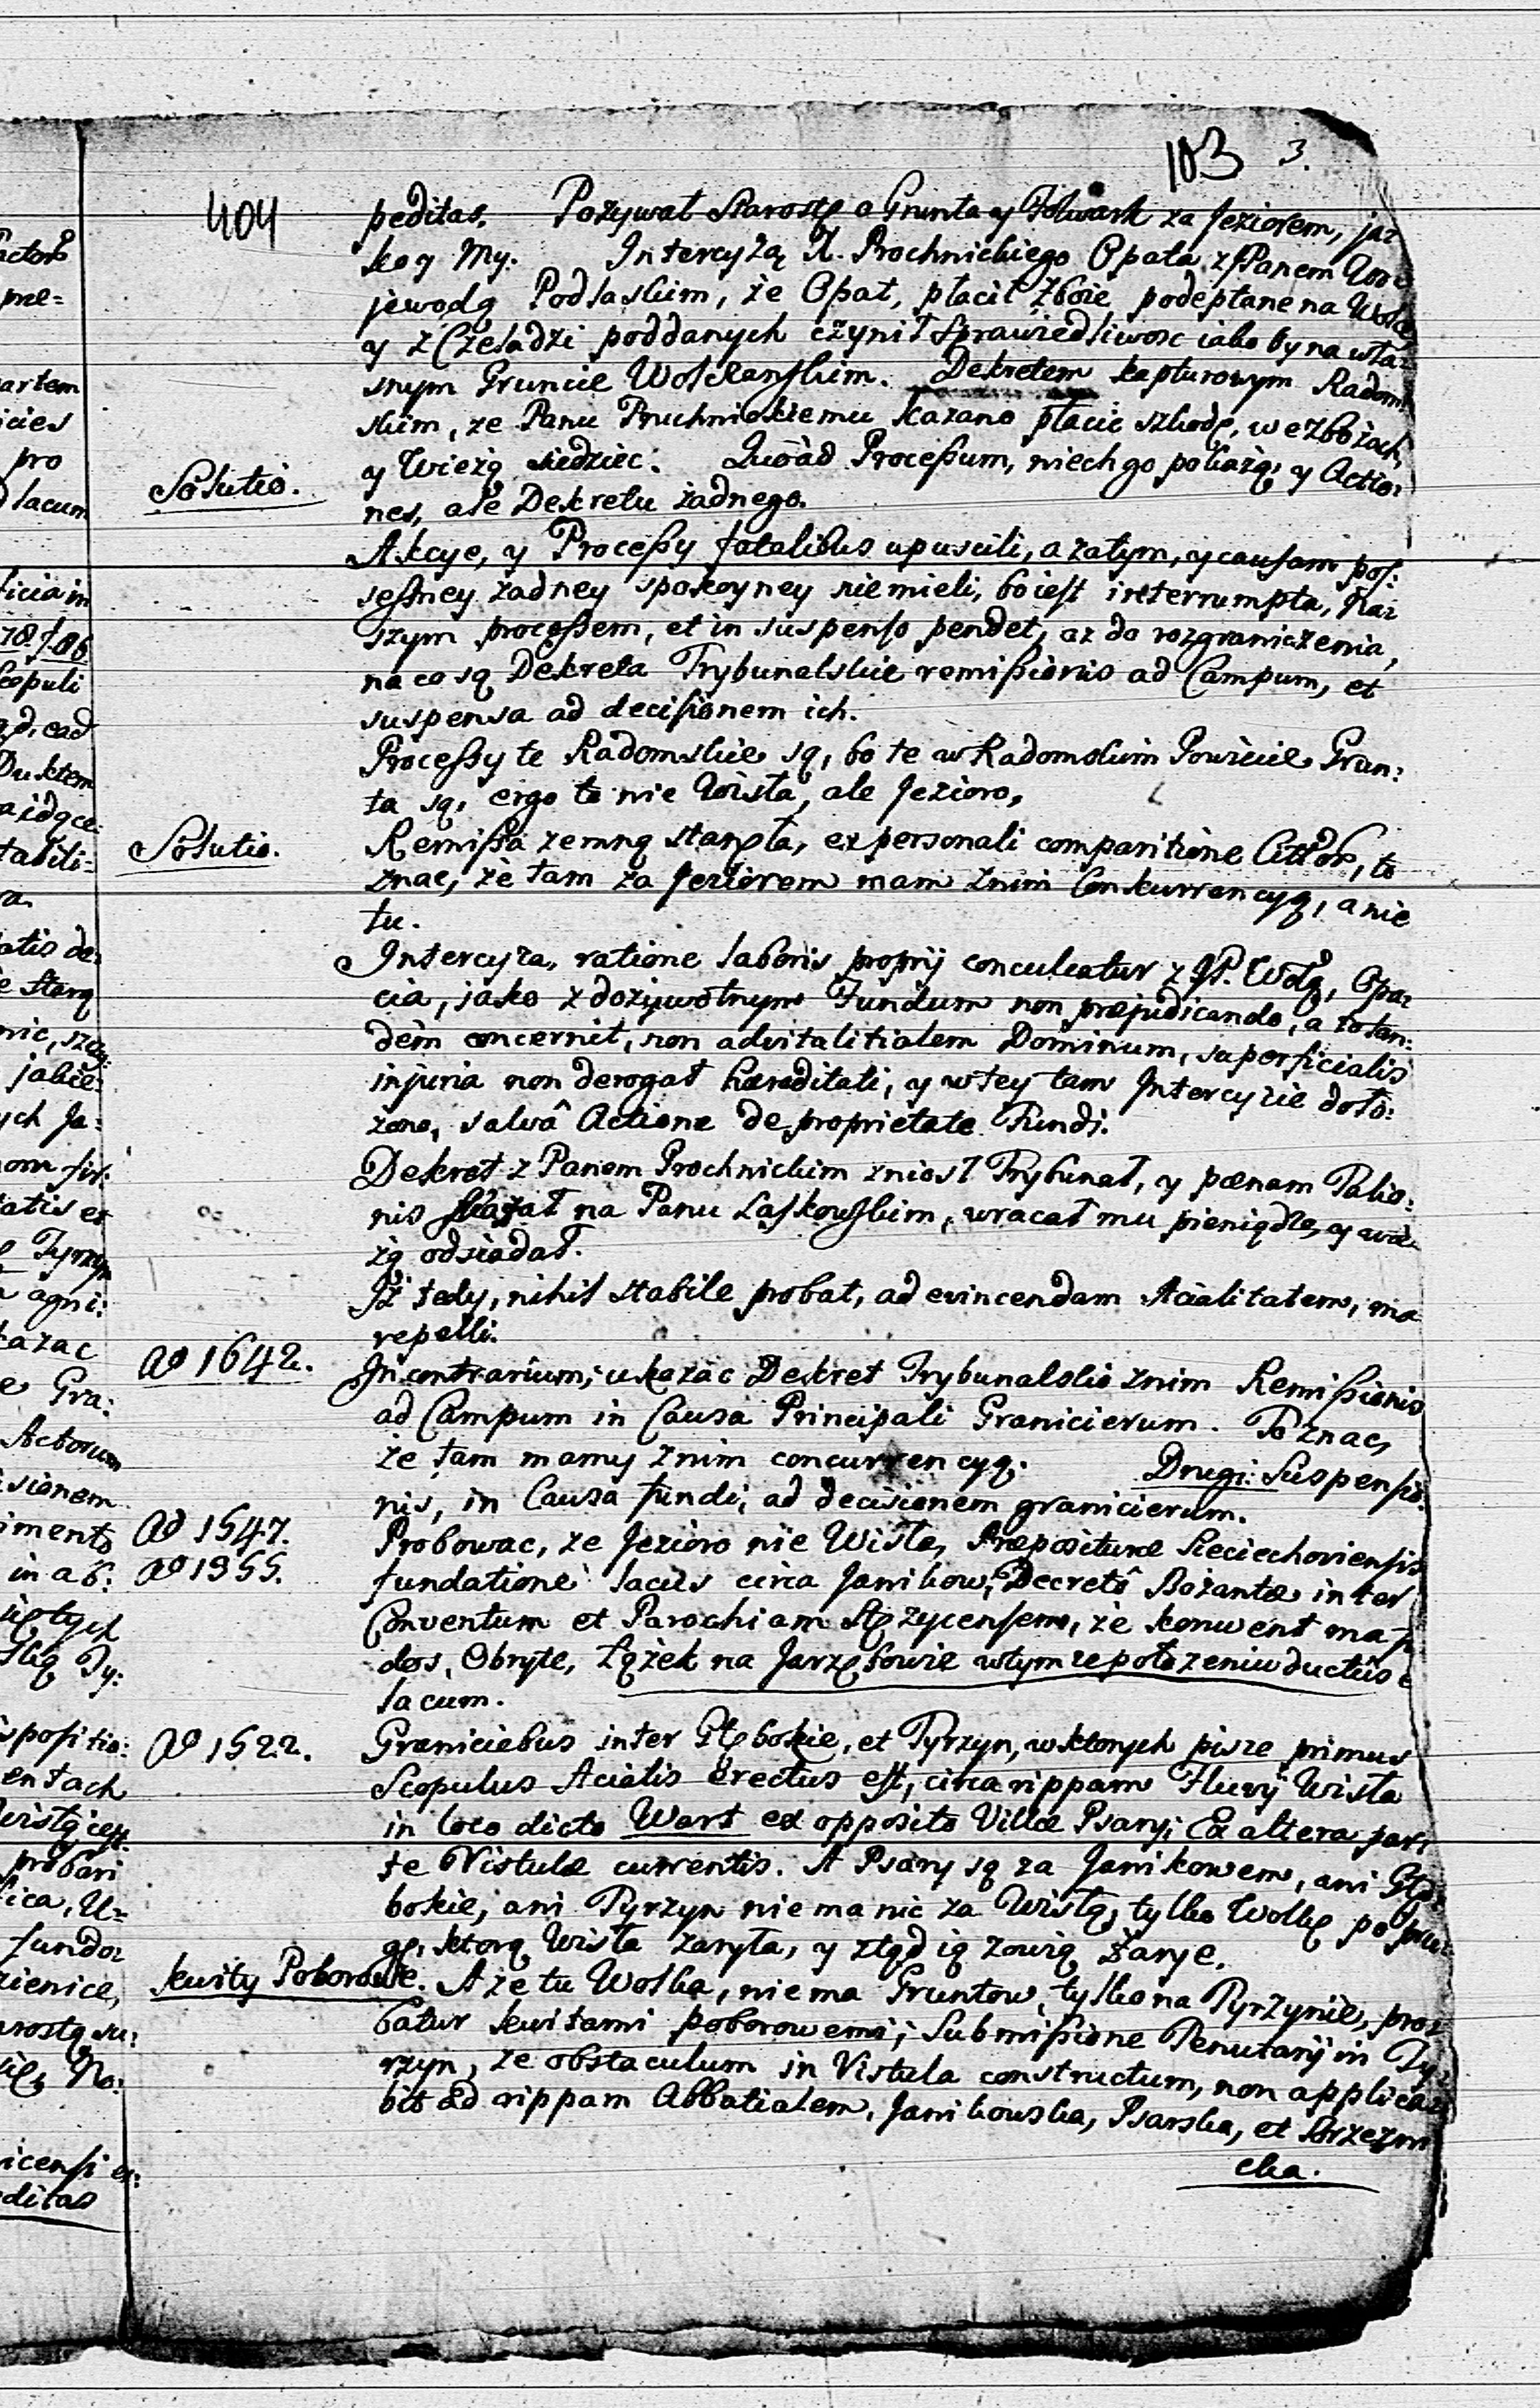 103 3.
404
peditas. Pozywał Starostę o Grunta y Folwark za Jeziorem, ja=
ko y My. Intercyzą X. Prochnickiego Opata z Panem Woie
jewodą Podlaskim, że Opat, płacił Zboże podeptane na Wolce
y z Czeladzi poddanych czynił Sprawiedliwosc iako by na wła=
snym Gruncie Wolczanskim. Dekretem kapturowym Radom
skim, ze Panu Pruchnickiemu kazano płacic szkodę, w ezbożach,
y Wieżą siedziec. Quoad Processum, niech go pokażą, y Actio=
nes, ale Dekretu żadnego.
Solutio.
Akcye, y Processy fatalibus upuscili, a zatym, y causam pos:
sessiney zadney spokoyney niemieli, bo iest interrumpta, Na=
szym processem, et in suspenso pendet, az do rozgraniczenia,
na co są Dekreta Trybunalskie remissionis ad Campum, et
suspensa ad decisionem ich.
Processy te Radomskie są, bo te w Radomskim Powiecie Grun:
ta są, ergo to nie Wisła, ale Jezioro,
Solutio.
Remissa zemną stanęła, ex personali comparitione Citator, to
znac, że tam za Jeziorem mam znim Conkurrencyą, a nie
tu.
Intercyza, ratione laboris proprij conculcatur z JP. Wodą, Opa=
cia, jako z dożywotnym Fundum non præjudicando, a to tan:
dem concernit, non advitalitialem Dominum, superficialis
injuria non derogat hæreditati, y w tey tam Intercyzie doło:
żono, salvâ Actione de proprietate Fundi.
Dekret z Panem Prochnickim zniosł Trybunał, y pænam Talio:
nis skazał na Panu Laskowskim, wracał mu pieniądze, y wie
żą odsiadał.
Jż tedy, nihil stabile probat, ad evincendam Acialitatem, ma
repelli.
Aō 1642.
In contrarium; ukazac Dekret Trybunalskio znim Remissionis
ad Campum in Causa Principali Granicierum. To znac,
że tam mamy znim concurrencyą. Drugi: Suspensio=
nis, in Causa fundi, ad decisionem granicierum.
Ad 1547.
Aō 1355.
Probowac, ze Jezioro nie Wisła, Præpositurae Sieciechoviensis
fundatione lacûs circa Janikow; Decretô Bożantæ inter
Conventum et Parochiam Stężycensem, że konwent ma
dos, Obryte, Łążek na Jarzębowie w tymze położeniu ductûs
lacum.
Aō 1522.
Graniciebus inter Głębokie, et Tyrzyn, w ktorych pisze primus
Scopulus Acialis erectus est, circa rippam Fluvij Wisła
in loco dicto Wart ex opposito Villæ Psary; Ex altera par=
te Vistulæ currentis. A Psary są za Janikowem, ani Głę=
bokie, ani Tyrzyn niema nic za Wisłą, tylko Wolkę
gę, ktorą Wisła zaryła, y ztąd ią zowią Zarye.
Kwity Poborowe.
A ze tu Wolka, niema Gruntow, tylko na Tyrzynie, pro=
batur kwitami poborowemi; Submissione Penutarij in Ty=
rzyn, ze obstaculum in Vistula constructum, non applica=
bit ad rippam Abbatialem, Janikowska, Psarska, et Brzezni
cka.